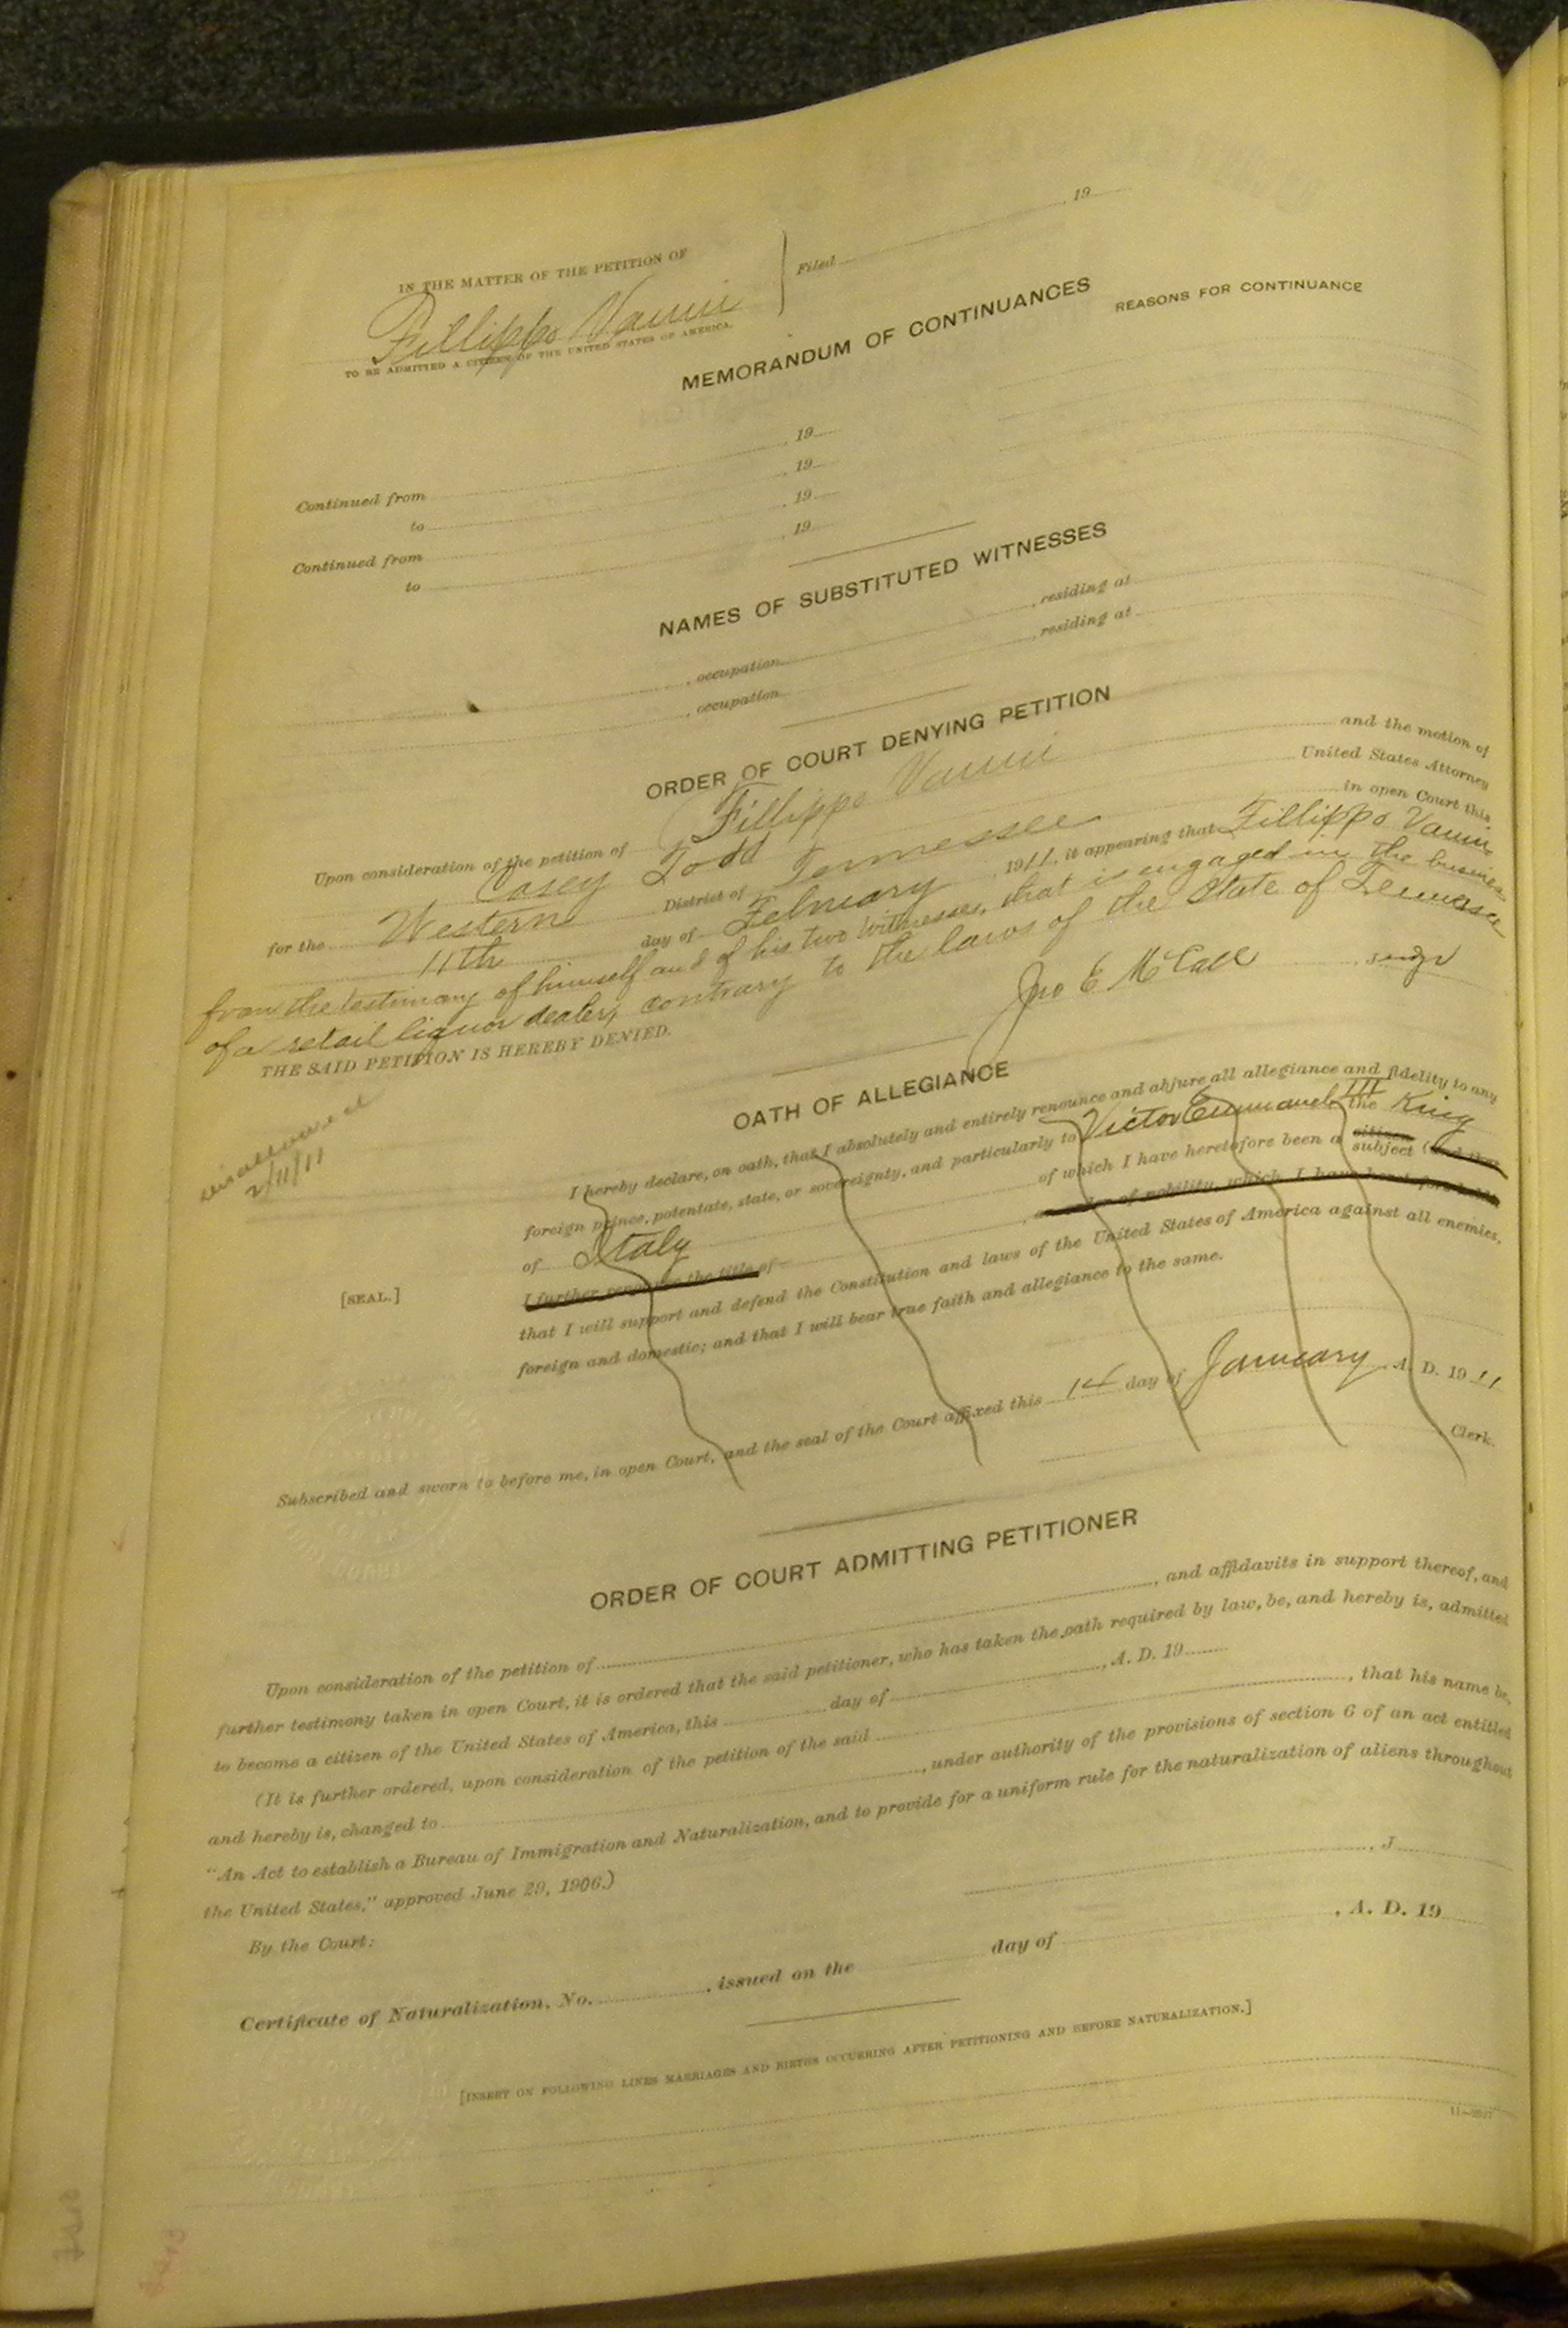 IN THE MATTER OF THE PETITION OF
Fillippo Vanni
TO BE ADMITTED A CITIZEN OF THE UNITED STATES OF AMERICA.
Filed , 19
MEMORANDUM OF CONTINUANCES
REASONS FOR CONTINUANCE
Continued from , 19
to , 19
Continued from , 19
to , 19
NAMES OF SUBSTITUTED WITNESSES
, occupation , residing at
, occupation , residing at
ORDER OF COURT DENYING PETITION
Upon consideration of the petition of Fillippo Vanni and the motion of
Casey Todd United States Attorney
for the Western District of Tennessee in open Court this
11th day of February , 1911, it appearing that Fillippo Vanni
from the testimony of himself and of his two witnesses, that is engaged in the business
of a retail liquor dealer, contrary to the laws of the State of Tennessee
THE SAID PETITION IS HEREBY DENIED.
Jno E McCall Judge
2/11/11
OATH OF ALLEGIANCE
I hereby declare, on oath, that I absolutely and entirely renounce and abjure all allegiance and fidelity to any
foreign prince, potentate, state, or sovereignty, and particularly to Victor Emmanuel III the King
of Italy of which I have heretofore been a citizen subject (and that
I further renounce the title of , an order of nobility, which I have heretofore held)
that I will support and defend the Constitution and laws of the United States of America against all enemies,
foreign and domestic; and that I will bear true faith and allegiance to the same.
[SEAL.]
Subscribed and sworn to before me, in open Court, and the seal of the Court affixed this 14 day of January A. D. 1911
Clerk.
ORDER OF COURT ADMITTING PETITIONER
Upon consideration of the petition of , and affidavits in support thereof, and
further testimony taken in open Court, it is ordered that the said petitioner, who has taken the oath required by law, be, and hereby is, admitted
to become a citizen of the United States of America, this day of , A. D. 19
(It is further ordered, upon consideration of the petition of the said , that his name be,
and hereby is, changed to , under authority of the provisions of section 6 of an act entitled
"An Act to establish a Bureau of Immigration and Naturalization, and to provide for a uniform rule for the naturalization of aliens throughout
the United States," approved June 29, 1906.)
By the Court:
, J
Certificate of Naturalization, No. , issued on the day of , A. D. 19
[INSERT ON FOLLOWING LINES MARRIAGES AND BIRTHS OCCURRING AFTER PETITIONING AND BEFORE NATURALIZATION.]